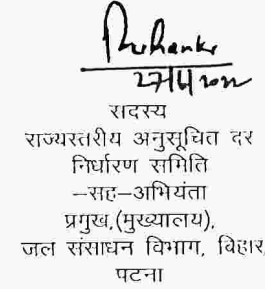 27/6/2022
सदस्य
राज्यस्तरीय अनुसूचित दर
निर्धारण समिति
–सह–अभियंता
प्रमुख,(मुख्यालय),
जल संसाधन विभाग, बिहार,
पटना